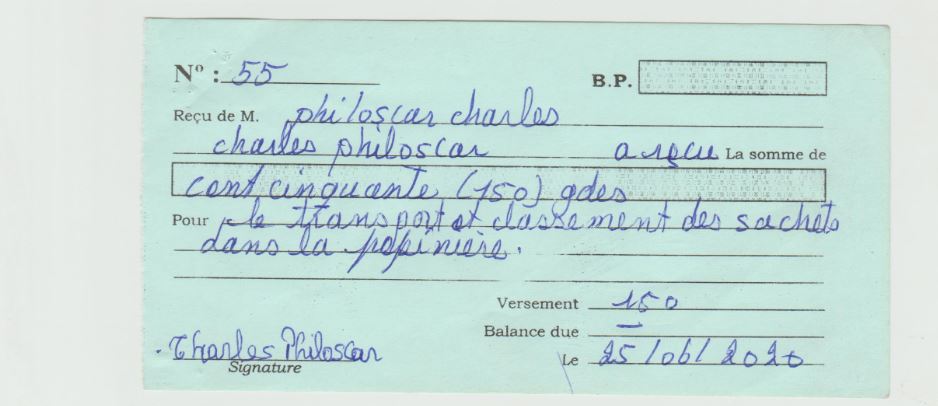 Nº : 55
B.P.
Reçu de M. philoscar charles
charles philoscar a reçu La somme de
cent cinquante (150) gdes
Pour le transport et classement des sachets
dans la pepinière.
Versement 150
Balance due —
Charles Philoscar
Signature
Le 25/06/2020